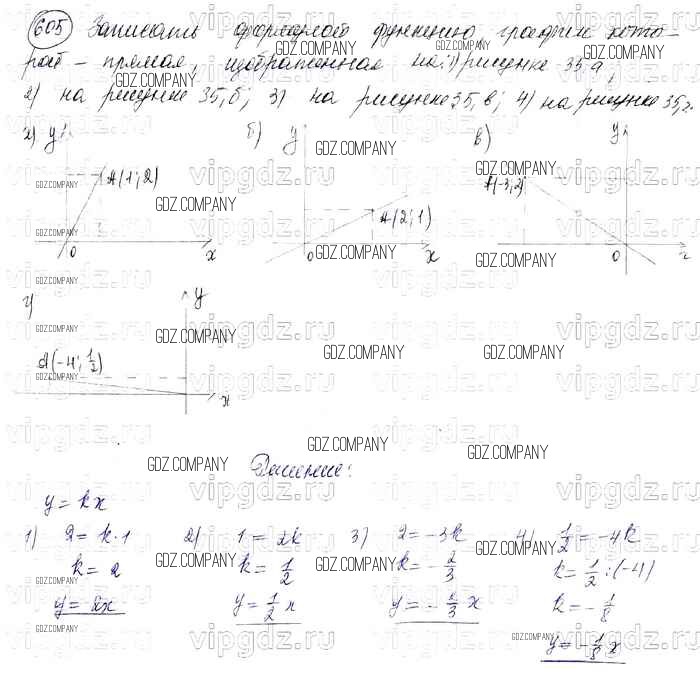 605 Записать формулой функцию, график кото-
рой – прямая, изображенная на: 1) рисунке 35,а;
2) на рисунке 35,б; 3) на рисунке 35,в; 4) на рисунке 35,г.
а) y A(1;2) 0 x
б) y A(2;1) 0 x
в) y A(-3;2) 0 x
г) y A(-4; 1/2) x
Решение:
y = kx
1) 2 = k·1
k = 2
y = 2x
2) 1 = 2k
k = 1/2
y = 1/2 x
3) 2 = -3k
k = -2/3
y = -2/3 x
4) 1/2 = -4k
k = 1/2 : (-4)
k = -1/8
y = -1/8 x
GDZ.COMPANY
vipgdz.ru